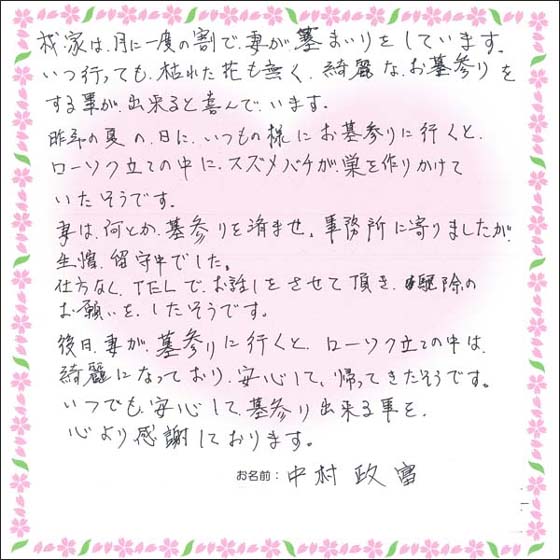 我家は、月に一度の割で、妻が墓まいりをしています。
いつ行っても、枯れた花も無く、綺麗な、お墓参りを
する事が、出来ると喜んで、います。
昨年の夏の、日に、いつもの様に、お墓参りに行くと、
ローソク立ての中に、スズメバチが、巣を作りかけて
いたそうです。
妻は、何とか、墓参りを済ませ、事務所に寄りましたが、
生憎、留守中でした。
仕方なく、TELで、お話しをさせて頂き、駆除の
お願いを、したそうです。
後日、妻が、墓参りに行くと、ローソク立ての中は、
綺麗になっており、安心して、帰ってきたそうです。
いつでも、安心して、墓参り出来る事を、
心より感謝しております。
お名前：中村 政富